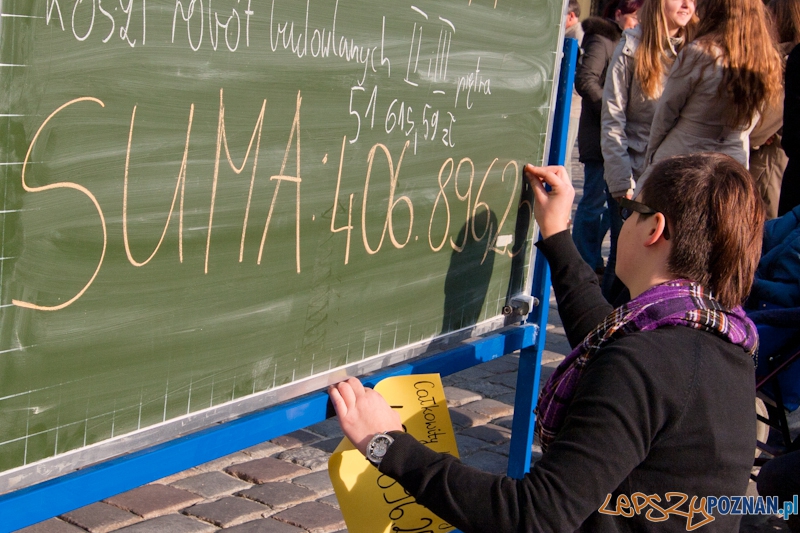 Koszt robót budowlanych II i III piętra
51 615,59 zł
SUMA: 406.896,23
Całkowity
LEPSZYPOZNAN.pl